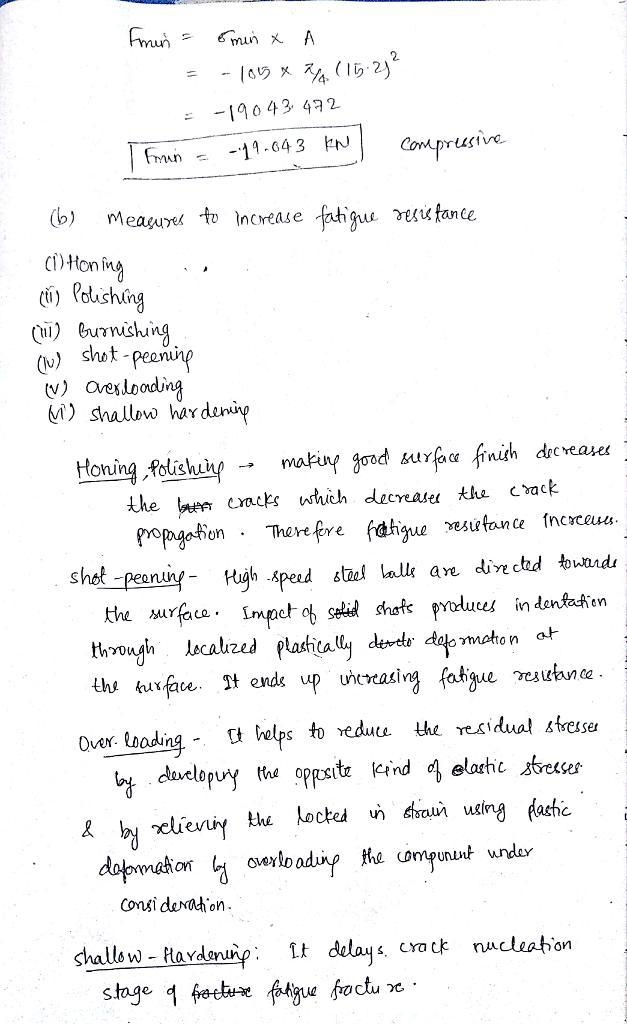 Fmin = σmin x A
= - 105 x π/4 (15.2)²
= -19043.472
Fmin = -19.043 KN compressive
(b) Measures to increase fatigue resistance
(i) Honing
(ii) Polishing
(iii) Burnishing
(iv) shot-peening
(v) overloading
(vi) shallow hardening
Honing, Polishing → making good surface finish decreases
the cracks which decreases the crack
propagation. Therefore fatigue resistance increases.
shot-peening - High speed steel balls are directed towards
the surface. Impact of solid shots produces indentation
through localized plastically deformation at
the surface. It ends up increasing fatigue resistance.
Over-loading - It helps to reduce the residual stresses
by developing the opposite kind of elastic stresses
& by relieving the locked in strain using plastic
deformation by overloading the component under
consideration.
shallow-Hardening: It delays crack nucleation
stage of fracture fatigue fracture.